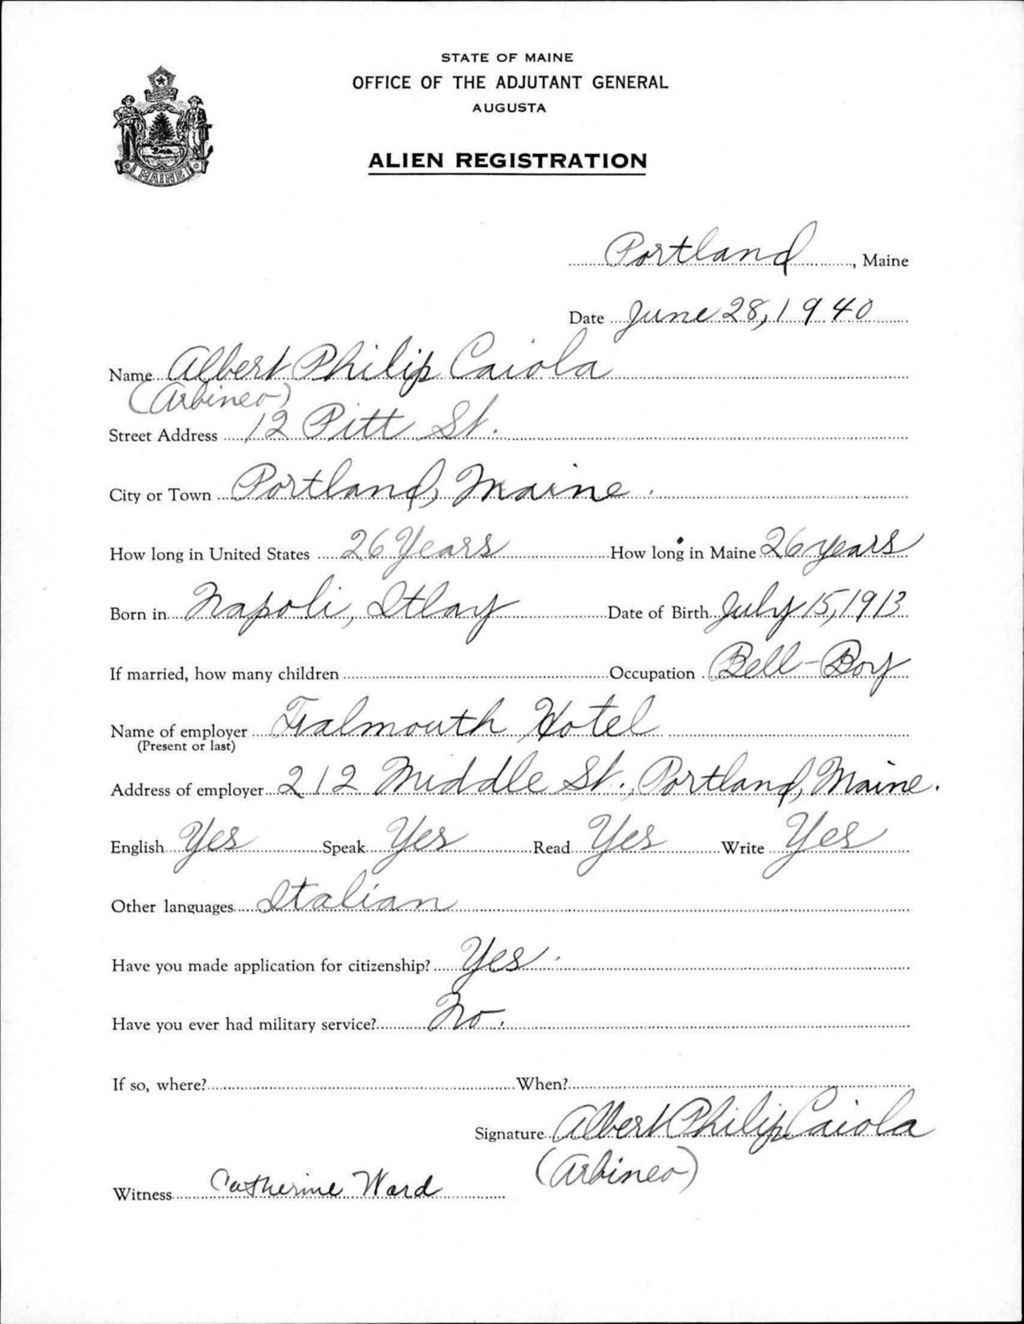 STATE OF MAINE
OFFICE OF THE ADJUTANT GENERAL
AUGUSTA
MAINE
ALIEN REGISTRATION
Portland, Maine
Date June 28, 1940
Name Albert Philip Caiola
(Arbineo)
Street Address 12 Pitt St.
City or Town Portland, Maine.
How long in United States 26 Years How long in Maine 26 years
Born in Napoli, Itlay Date of Birth July 15, 1913
If married, how many children Occupation Bell-Boy
Name of employer Falmouth Hotel
(Present or last)
Address of employer 212 Middle St., Portland, Maine.
English Yes Speak Yes Read Yes Write Yes
Other languages Italian
Have you made application for citizenship? Yes.
Have you ever had military service? No.
If so, where? When?
Signature Albert Philip Caiola
(Arbineo)
Witness Catherine Ward